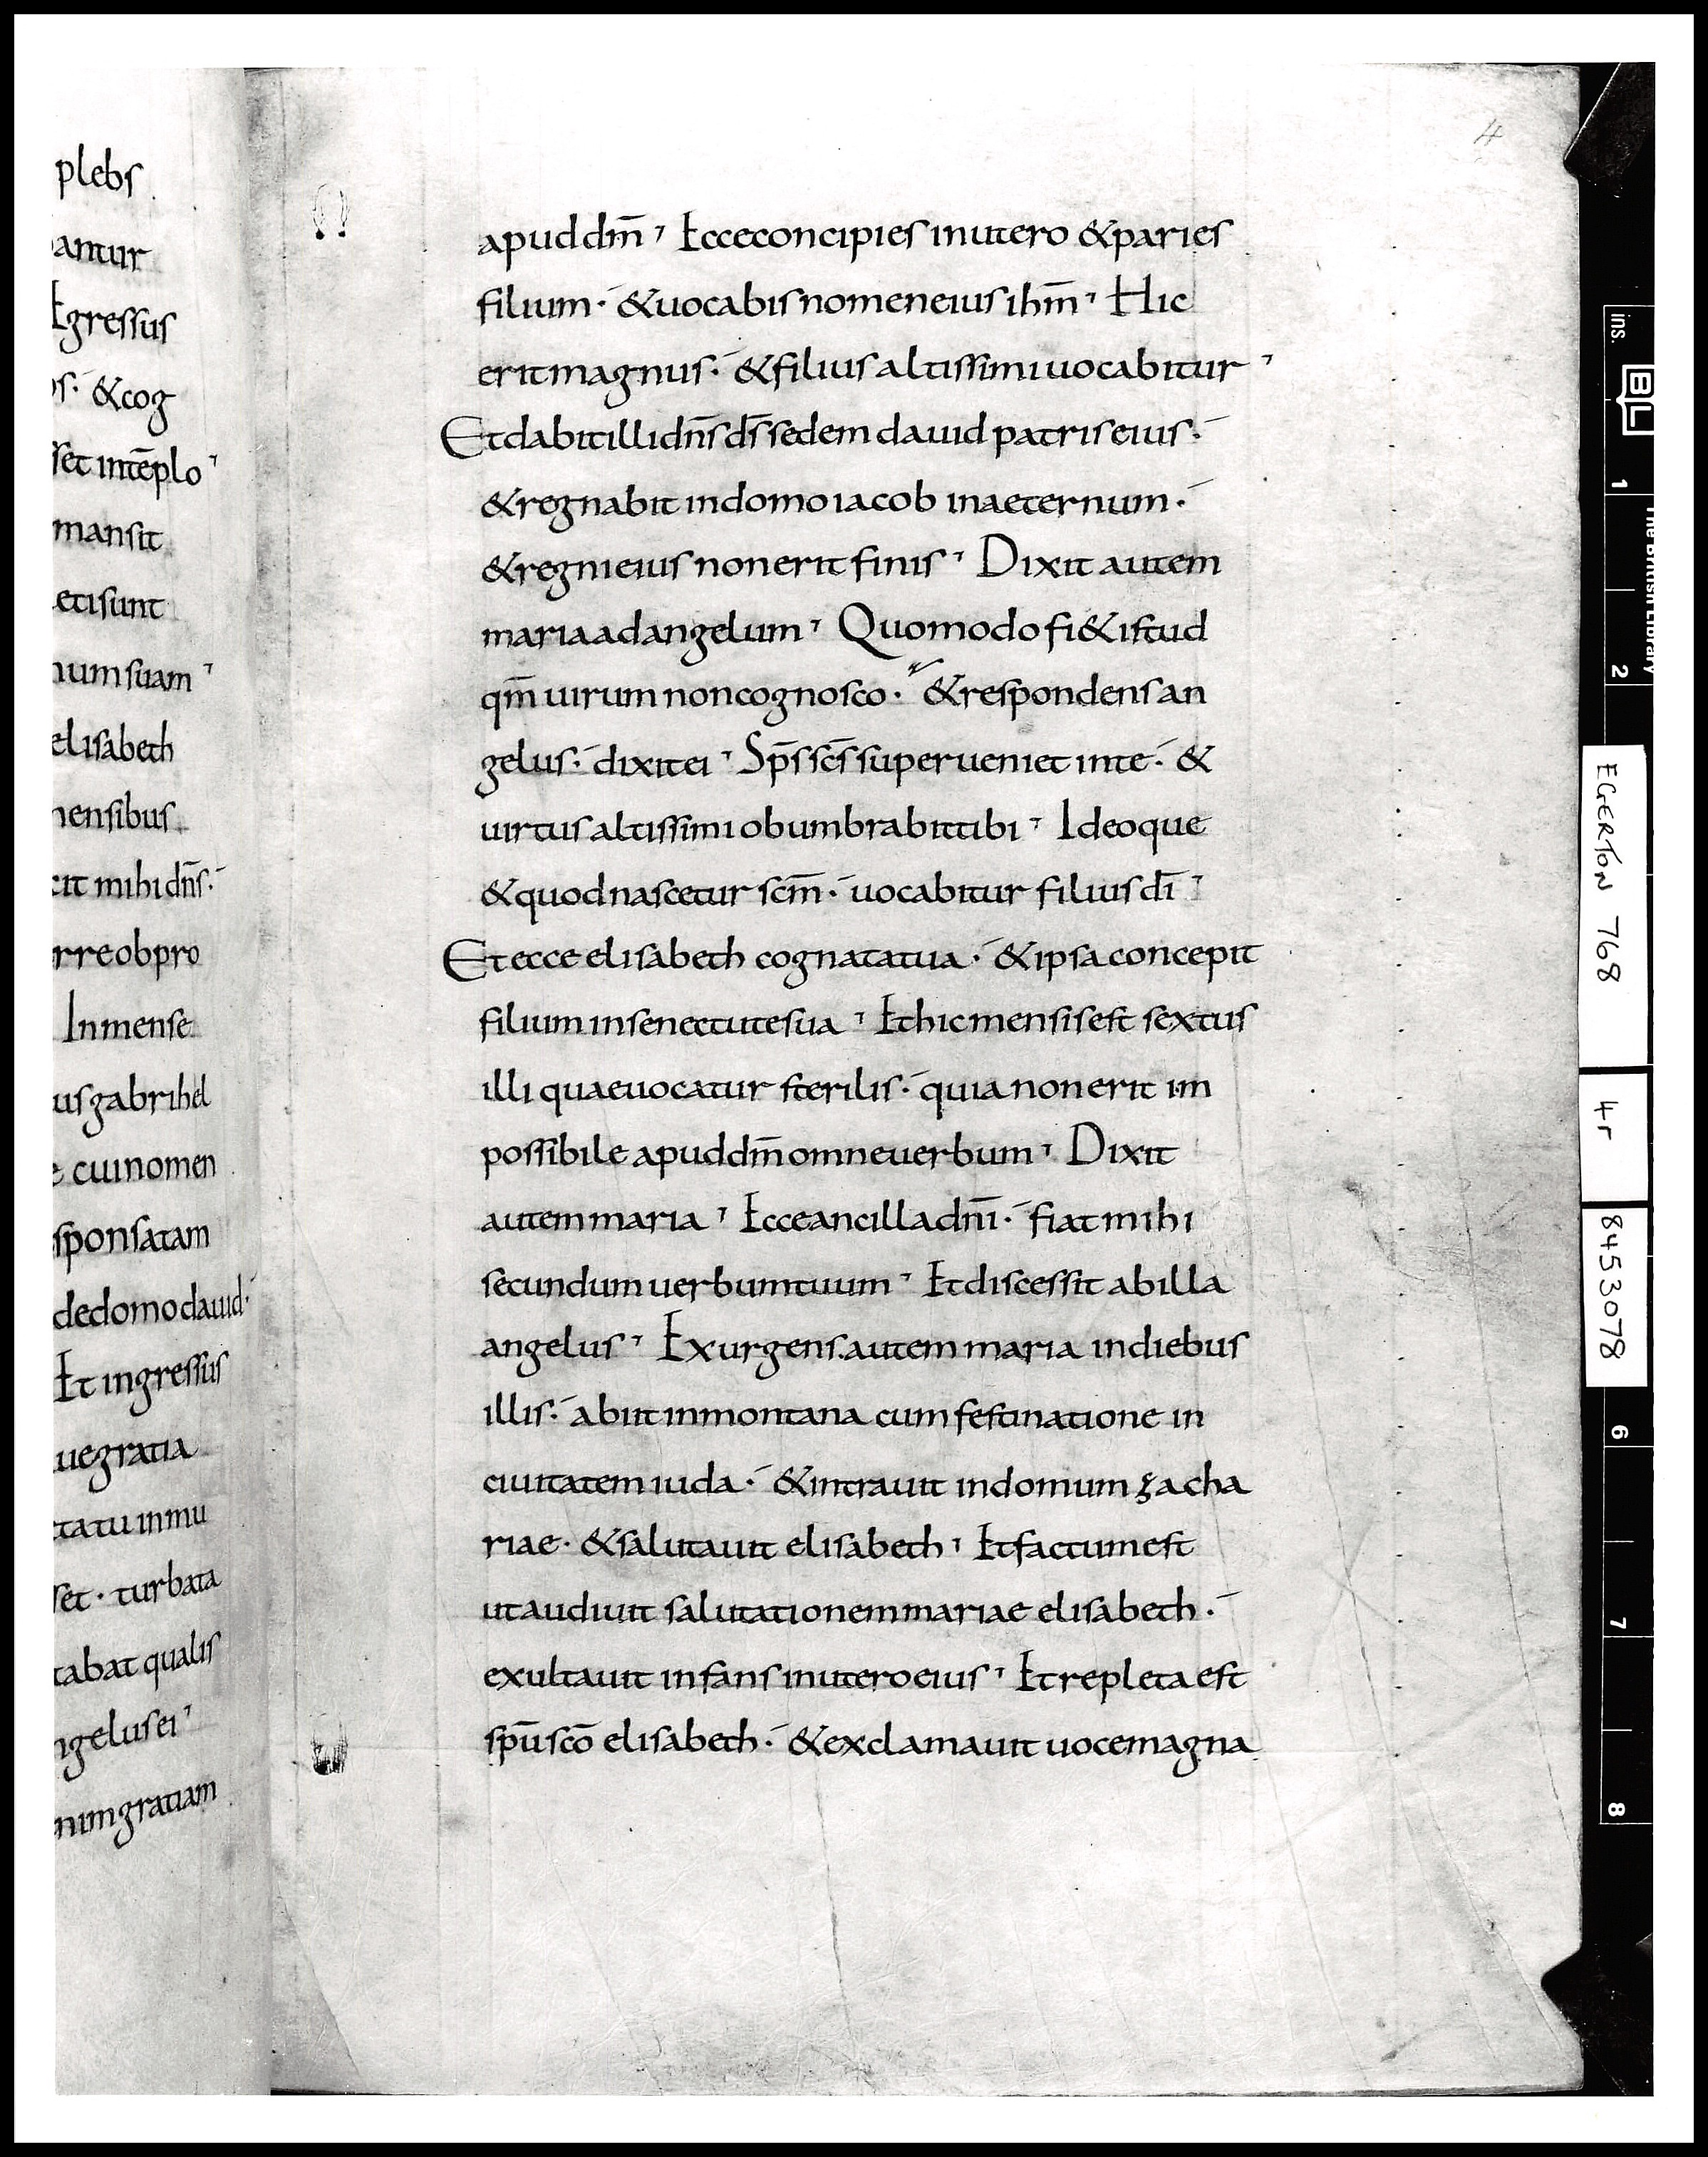 plebs
antur
Egressus
os· &cog
set intēplo
mansit
etisunt
numsuam
elisabeth
mensibus
cit mihi dn̄s·
rreobpro
Inmense
us gabrihel
e cuinomen
sponsatam
dedomodauid·
Et ingressus
uegratia
tatu inmu
set· turbata
tabat qualis
ngelusei
nimgratiam
4
apud dm̄ ⁊ Ecce concipies inutero &paries
filium· &uocabis nomen eius ihm̄ ⁊ Hic
erit magnus· &filius altissimi uocabitur ⁊
Et dabit illi dn̄s ds̄ sedem dauid patris eius·
&regnabit in domo iacob inaeternum·
&regni eius non erit finis ⁊ Dixit autem
maria ad angelum ⁊ Quomodo fi&istud
qm̄ uirum non cognosco· &respondens an
gelus· dixit ei ⁊ Sp̄s sc̄s superueniet inte· &
uirtus altissimi obumbrabit tibi ⁊ Ideoque
&quod nascetur scm̄· uocabitur filius dī ⁊
Et ecce elisabeth cognata tua· &ipsa concepit
filium in senectute sua ⁊ Et hic mensis est sextus
illi quae uocatur sterilis· quia non erit im
possibile apud dm̄ omne uerbum ⁊ Dixit
autem maria ⁊ Ecce ancilla dn̄i· fiat mihi
secundum uerbum tuum ⁊ Et discessit ab illa
angelus ⁊ Exurgens autem maria indiebus
illis· abiit inmontana cum festinatione in
ciuitatem iuda· &intrauit indomum zacha
riae· &salutauit elisabeth ⁊ Et factum est
ut audiuit salutationem mariae elisabeth·
exultauit infans inutero eius ⁊ Et repleta est
spū scō elisabeth· &exclamauit uoce magna
ins.
BL
The British Library
1
2
EGERTON 768
4r
8453078
6
7
8